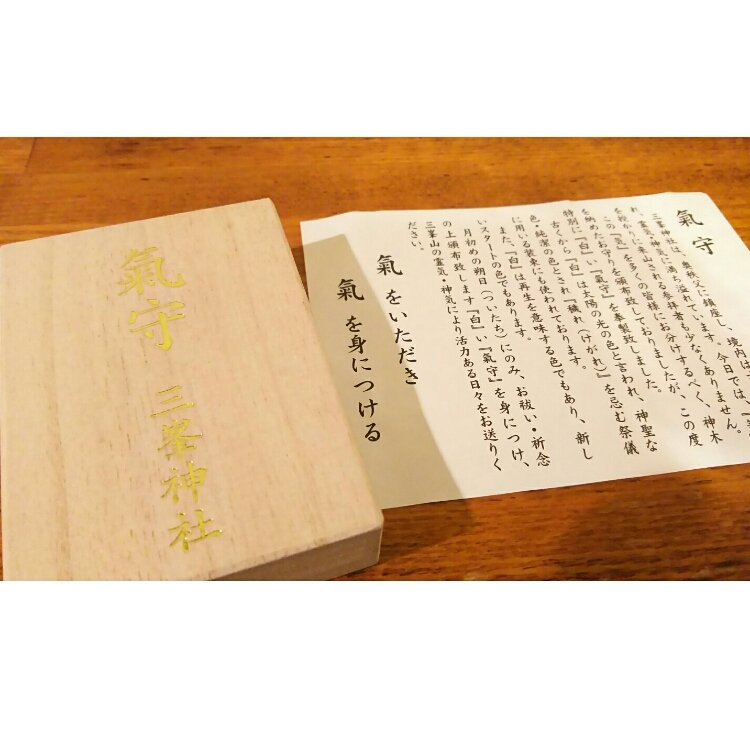 氣守
三峯神社
氣守
三峯神社は、奥秩父に鎮座し、境内は
れ、霊気・神気に満ち溢れています。今日では、
を授かりに来山される参拝者も少なくありません。
この『氣』を多くの皆様にお分けするべく、神木
を納めたお守りを頒布致しておりましたが、この度
特別に『白』い『氣守』を奉製致しました。
古くから『白』は太陽の光の色と言われ、神聖な
色・純潔の色とされ『穢れ（けがれ）』を忌む祭儀
に用いる装束にも使われております。
また、『白』は再生を意味する色でもあり、新し
いスタートの色でもあります。
月初めの朔日（ついたち）にのみ、お祓い・祈念
の上頒布致します『白』い『氣守』を身につけ、
三峯山の霊気・神気により活力ある日々をお送りく
ださい。
氣をいただき
氣を身につける